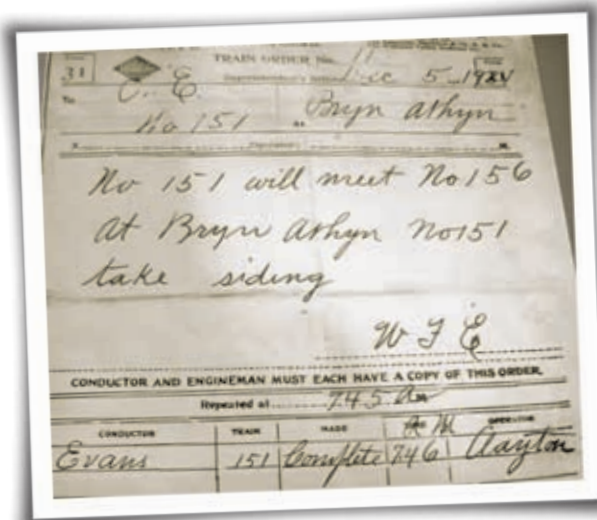 31 TRAIN ORDER No. 11
Superintendent's Dec 5 1921
To C. E.
No 151 at Bryn Athyn
X Operator M.
No 151 will meet No 156
at Bryn Athyn No 151
take siding
W F E
CONDUCTOR AND ENGINEMAN MUST EACH HAVE A COPY OF THIS ORDER.
Repeated at 745 am
CONDUCTOR TRAIN MADE A M OPERATOR
Evans 151 Complete 746 Clayton